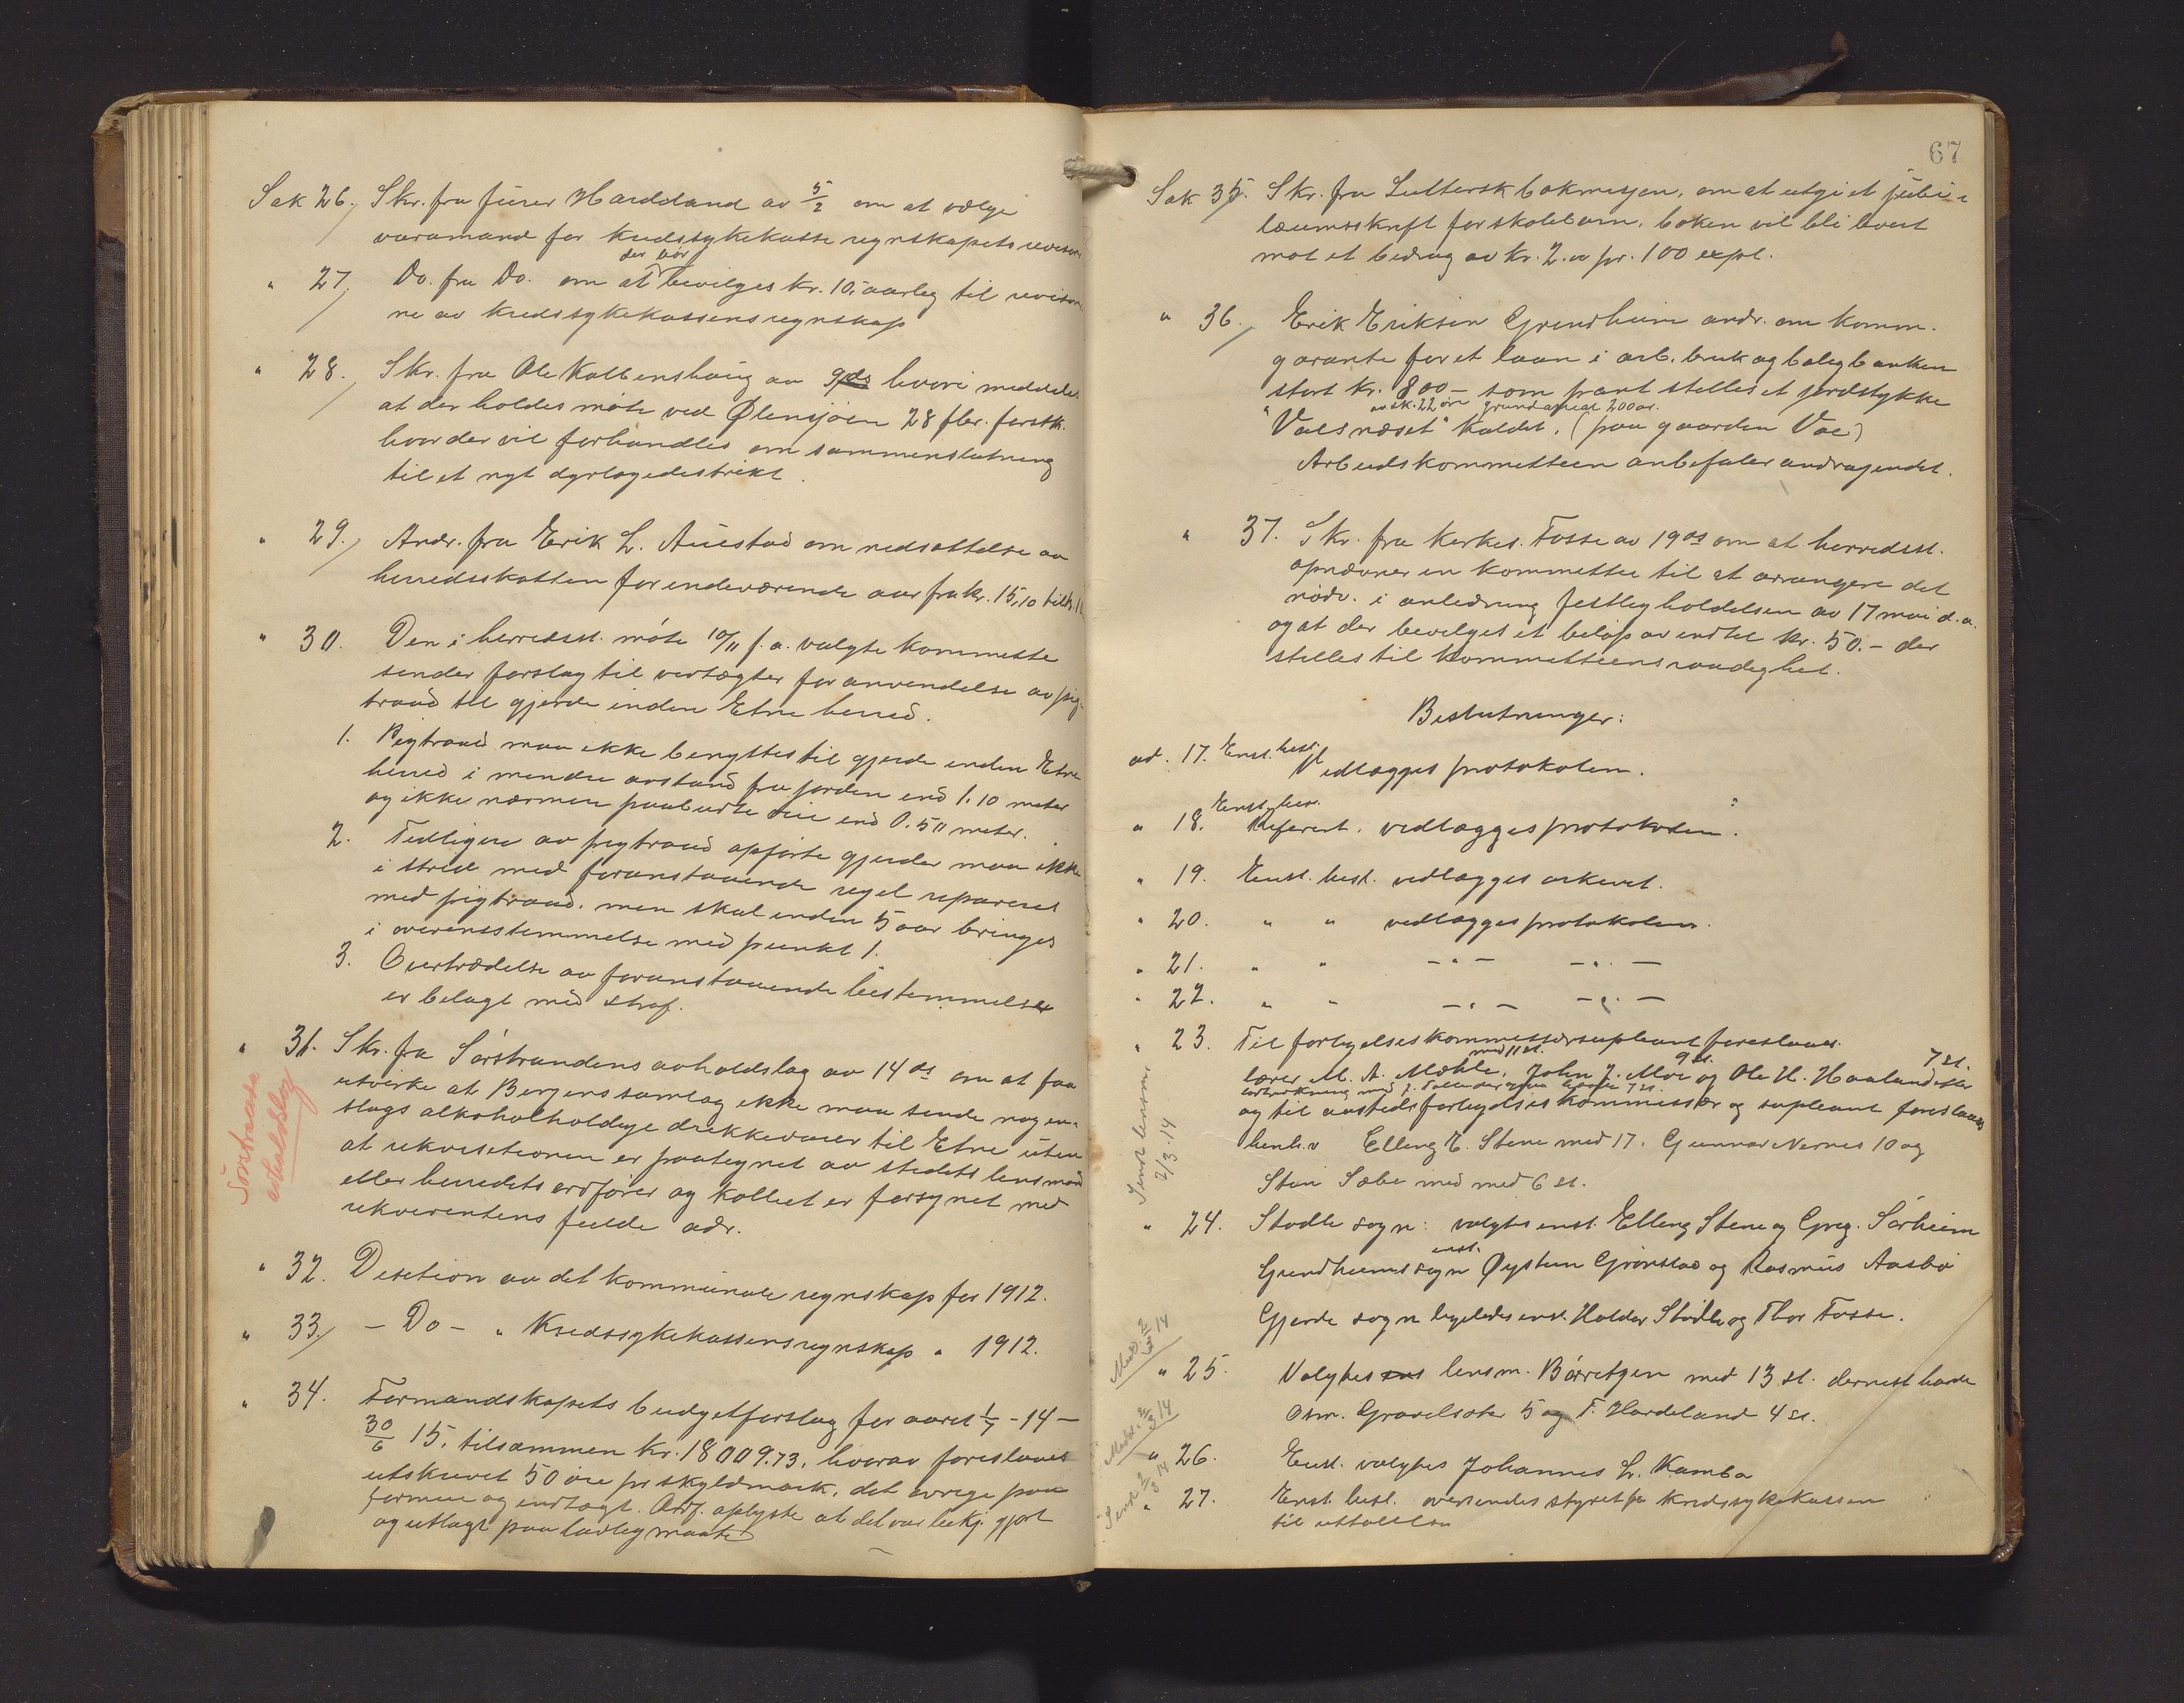 Sak 26. Skr. fra fører Hardeland av 5/2 om at vælge
varamand for kredssykekasse regnskapets revisor
" 27. Do. fra Do. om at der bør bevilges kr. 10,- aarleg til reviso-
ne av kredssykekassens regnskap
" 28. Skr. fra Ole Kolbenshaug av 9ds hvori meddeles
at der holdes møte ved Ølensjøen 28 fbr. førstk.
hvor der vil forhandles om sammenslutning
til et nyt dyrlægedistrikt.
" 29. Andr. fra Erik L. Austad om nedsættelse av
herredsskatten for indeværende aar fra kr. 15,10 til kr.
" 30. Den i herredsst. møte 10/11 f.a. valgte kommette
sender forslag til vertægter for anvendelse av pig-
traad til gjerde inden Etne herred.
1. Pigtraad maa ikke benyttes til gjerde inden Etne
herred i mindre avstand fra jorden end 1.10 meter
og ikke nærmere paabudte vei end 0.50 meter.
2. Tidligere av pigtraad opførte gjerder maa ikke
i strid med foranstaaende regel repareres
med pigtraad, men skal inden 5 aar bringes
i overensstemmelse med punkt 1.
3. Overtrædelse av foranstaaende bestemmelser
er belagt med straf.
" 31. Skr. fra Sørstrandens avholdslag av 14ds om at faa
utvirke at Bergens samlag ikke maa sende nogen-
slags alkoholholdige drikkevarer til Etne uten
at rekvisitionen er paategnet av stedets lensmand
eller herredets ordfører og kolliet er forsynet med
rekvirentens fulde adr.
Sørstrands
avholdslag
" 32. Desition av det kommunale regnskap for 1912.
" 33. - Do - " Kredssykekassens regnskap " 1912.
" 34. Formandskapets budgetforslag for aaret 1/7 - 14 -
30/6 15, tilsammen kr. 18009.73, hvorav foreslaaes
utskrevet 50 øre pr skyldmark, det øvrige paa
formue og indtægt. Ordf. oplyste at det var bekj. gjort
og utlagt paa lovleg maate
67
Sak 35. Skr. fra Luthersk bokmisjon, om at utgi et jubi-
læumsskrift for skolebarn, boken vil bli levert
mot et bedrag av Kr. 2.00 pr. 100 expl.
" 36. Erik Eriksen Grindheim andr. om komm.
garante for et laan i arb. bruk og boligbanken
stort kr. 800- som pant stilles et jordstykke
av sk. 22 øre grundareal 200 ar.
"Valsnæset" kaldet, (paa gaarden Vae)
Arbeidskommetteen anbefaler andragendet.
" 37. Skr. fra kirkes. Fosse av 19ds om at herredsst.
opnævner en kommette til at arrangere det
nødv. i anledning festleg holdelsen av 17 mai d.a.
og at der bevilges et beløp av indtil kr. 50.- der
stilles til kommetteens raadighet.
Beslutninger:
ad. 17. Enst. besl. Vedlægges protokolen.
" 18. Enst. besl. Referert. vedlægges protokolen.
" 19. Enst. besl. vedlægges arkivet.
" 20. " " vedlægges protokolen.
" 21. " " - " - - " -
" 22. " " - " - - " -
" 23. Til forligelseskommissærsupleant foreslaaes
med 11 st. 9 st. 7 st.
lærer M. A. Mæhle, John J. Moe og Ole H. Haaland efter
lodtrækning med
og til aasteds forligelseskommissær og supleant foreslaaes
henh.v Elling E. Stene med 17. Gunnar Nernes 10 og
Sten Sæbe med med 6 st.
Sendt lensman 2/3.14
" 24. Stødle sogn: valgtes enst. Elling Stene og Greg. Sørheim
Grindheims sogn enst. Øystein Grønstad og Rasmus Aasbø
Gjerde sogn ligeledes enst. Haldor Stødle og Thor Fosse.
Medd. 2/3 14
" 25. Valgtes lensm. Børretzen med 13 st. dernest havde
Osm. Gravelsæter 5 og T. Hardeland 4 st.
Medd. 2/3 14
" 26. Enst. valgtes Johannes L. Kambo
Sendt 2/3 14
" 27. Enst. besl. oversendes styret for kredssykekassen
til uttalelse